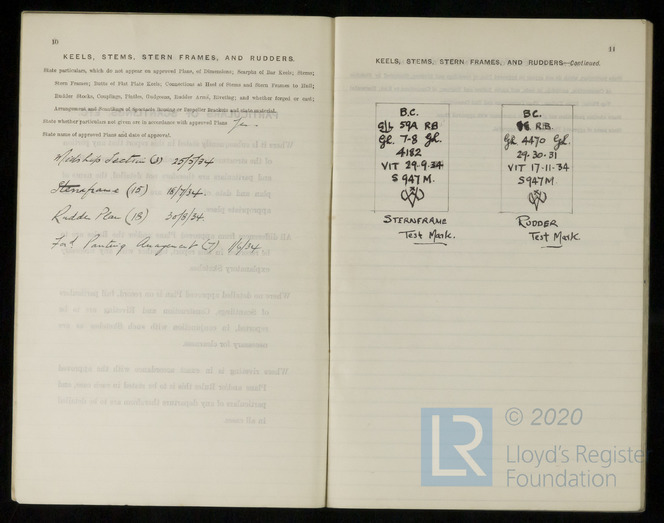 10
KEELS, STEMS, STERN FRAMES, AND RUDDERS.
State particulars, which do not appear on approved Plans, of Dimensions; Scarphs of Bar Keels; Stems;
Stern Frames; Butts of Flat Plate Keels; Connections at Heel of Stems and Stern Frames to Hull;
Rudder Stocks, Couplings, Pintles, Gudgeons, Rudder Arms, Riveting; and whether forged or cast;
Arrangement and Scantlings of Spectacle Bossing or Propeller Brackets and state material.
State whether particulars not given are in accordance with approved Plans Yes
State name of approved Plans and dates of approval.
Midship Section (3) 25/5/34
Sternframe (15) 18/7/34.
Rudder Plan (18) 30/8/34
Ford Panting Arrangement (7) 1/6/34
11
KEELS, STEMS, STERN FRAMES, AND RUDDERS—Continued.
B.C.
59A RB
7-8
4182
VIT 29.9.34
S 947 M.
STERNFRAME
Test Mark.
B.C.
R.B.
4470
29-30-31
VIT 17-11-34
S 947 M.
RUDDER
Test Mark
LR
© 2020
Lloyd's Register
Foundation